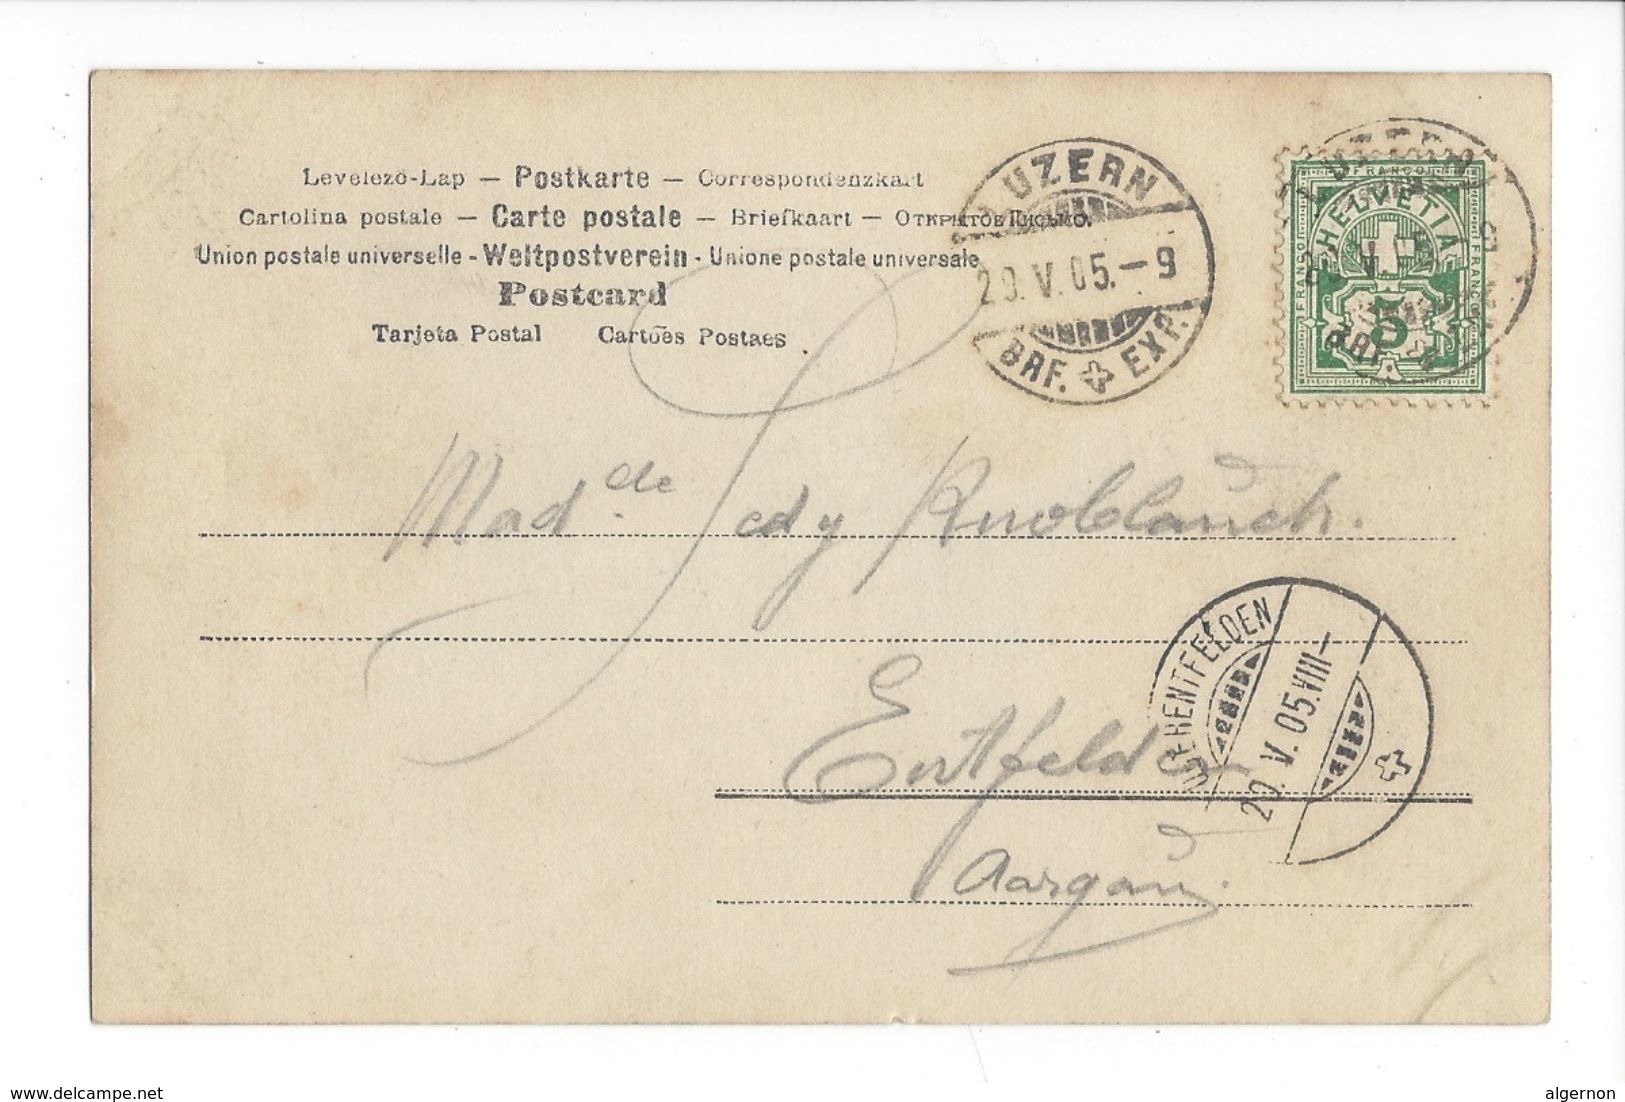 Levelező-Lap — Postkarte — Correspondenzkart
Cartolina postale — Carte postale — Briefkaart — Открытое Письмо.
Union postale universelle - Weltpostverein - Unione postale universale
Postcard
Tarjeta Postal Cartões Postaes
LUZERN
29.V.05.-9
BRF. EXP.
FRANCO
HELVETIA
FRANCO
FRANCO
5
LUZERN
BRF.
Mad.lle Hedy Knoblauch.
Entfelden
Aargau.
OBERENTFELDEN
29.V.05.VIII-
www.delcampe.net
algernon